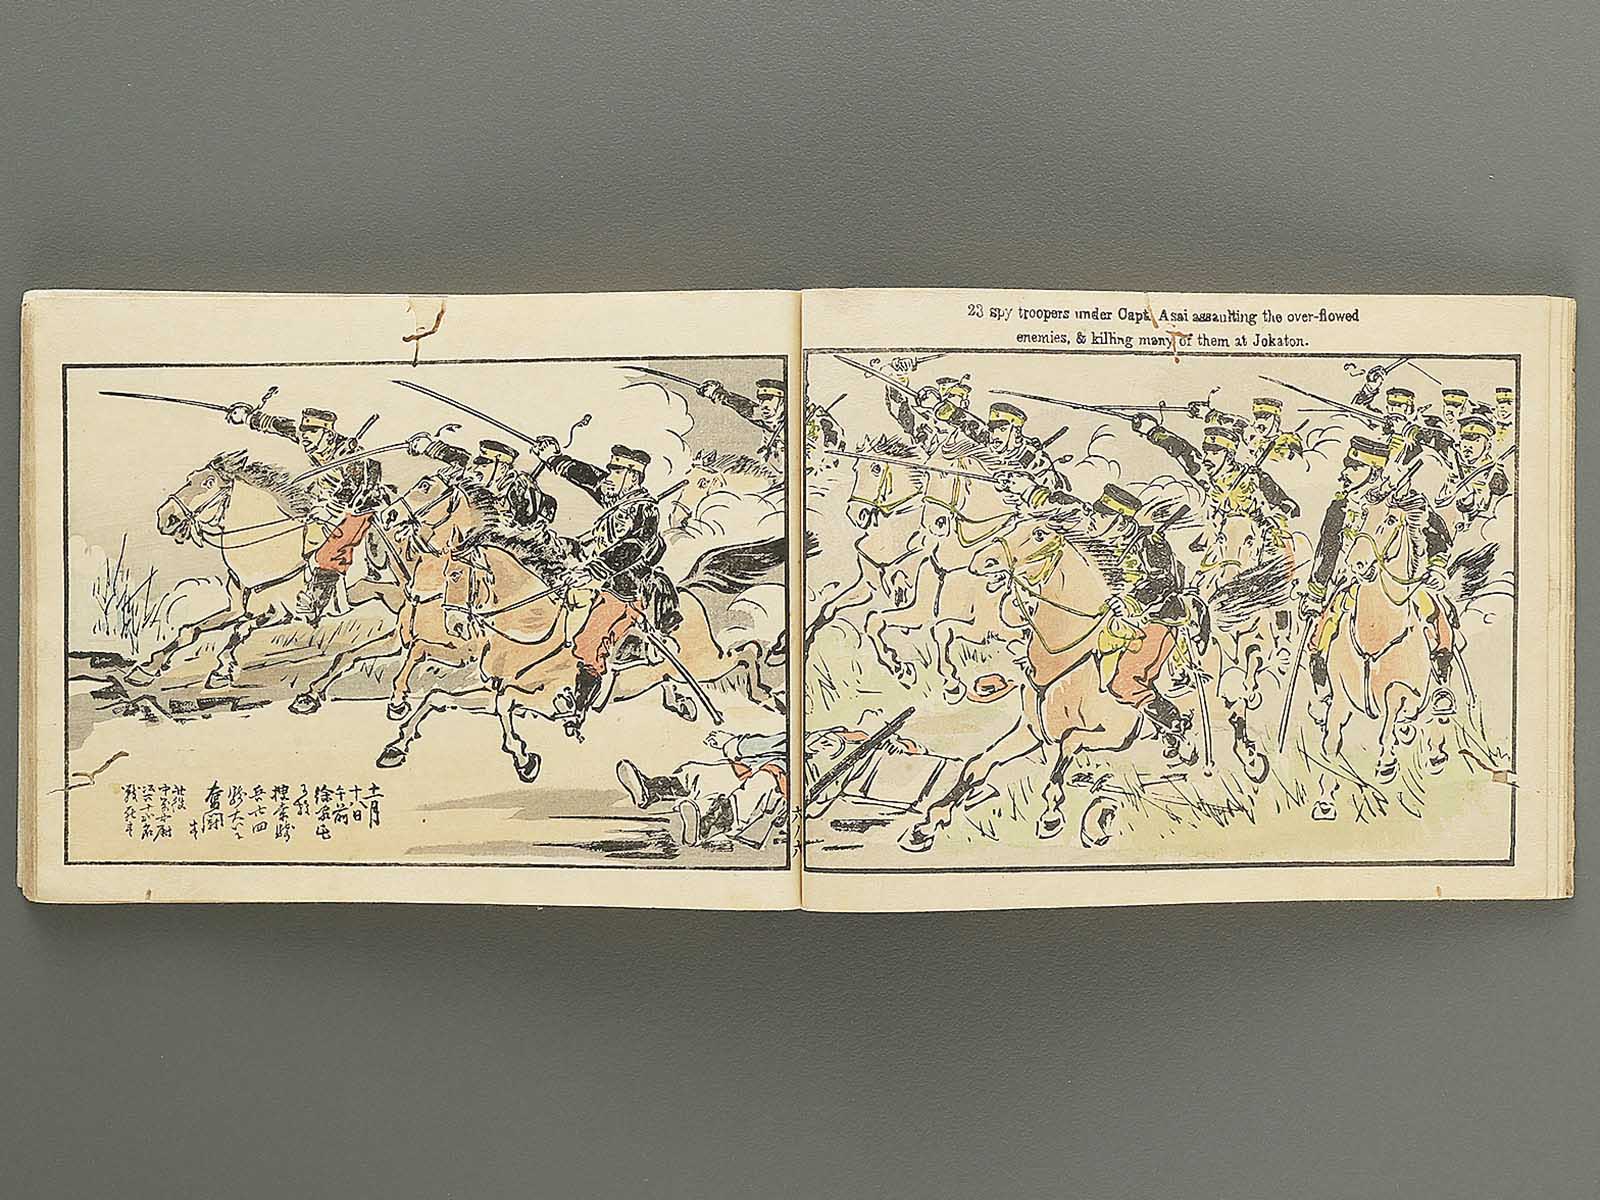 23 spy troopers under Capt. Asai assaulting the over-flowed
enemies, & killing many of them at Jokaton.
十一月
十八日
午前
徐家屯
捜索騎
兵廿四
騎大
奮闘
此役
中萬中尉
以下十
戦死